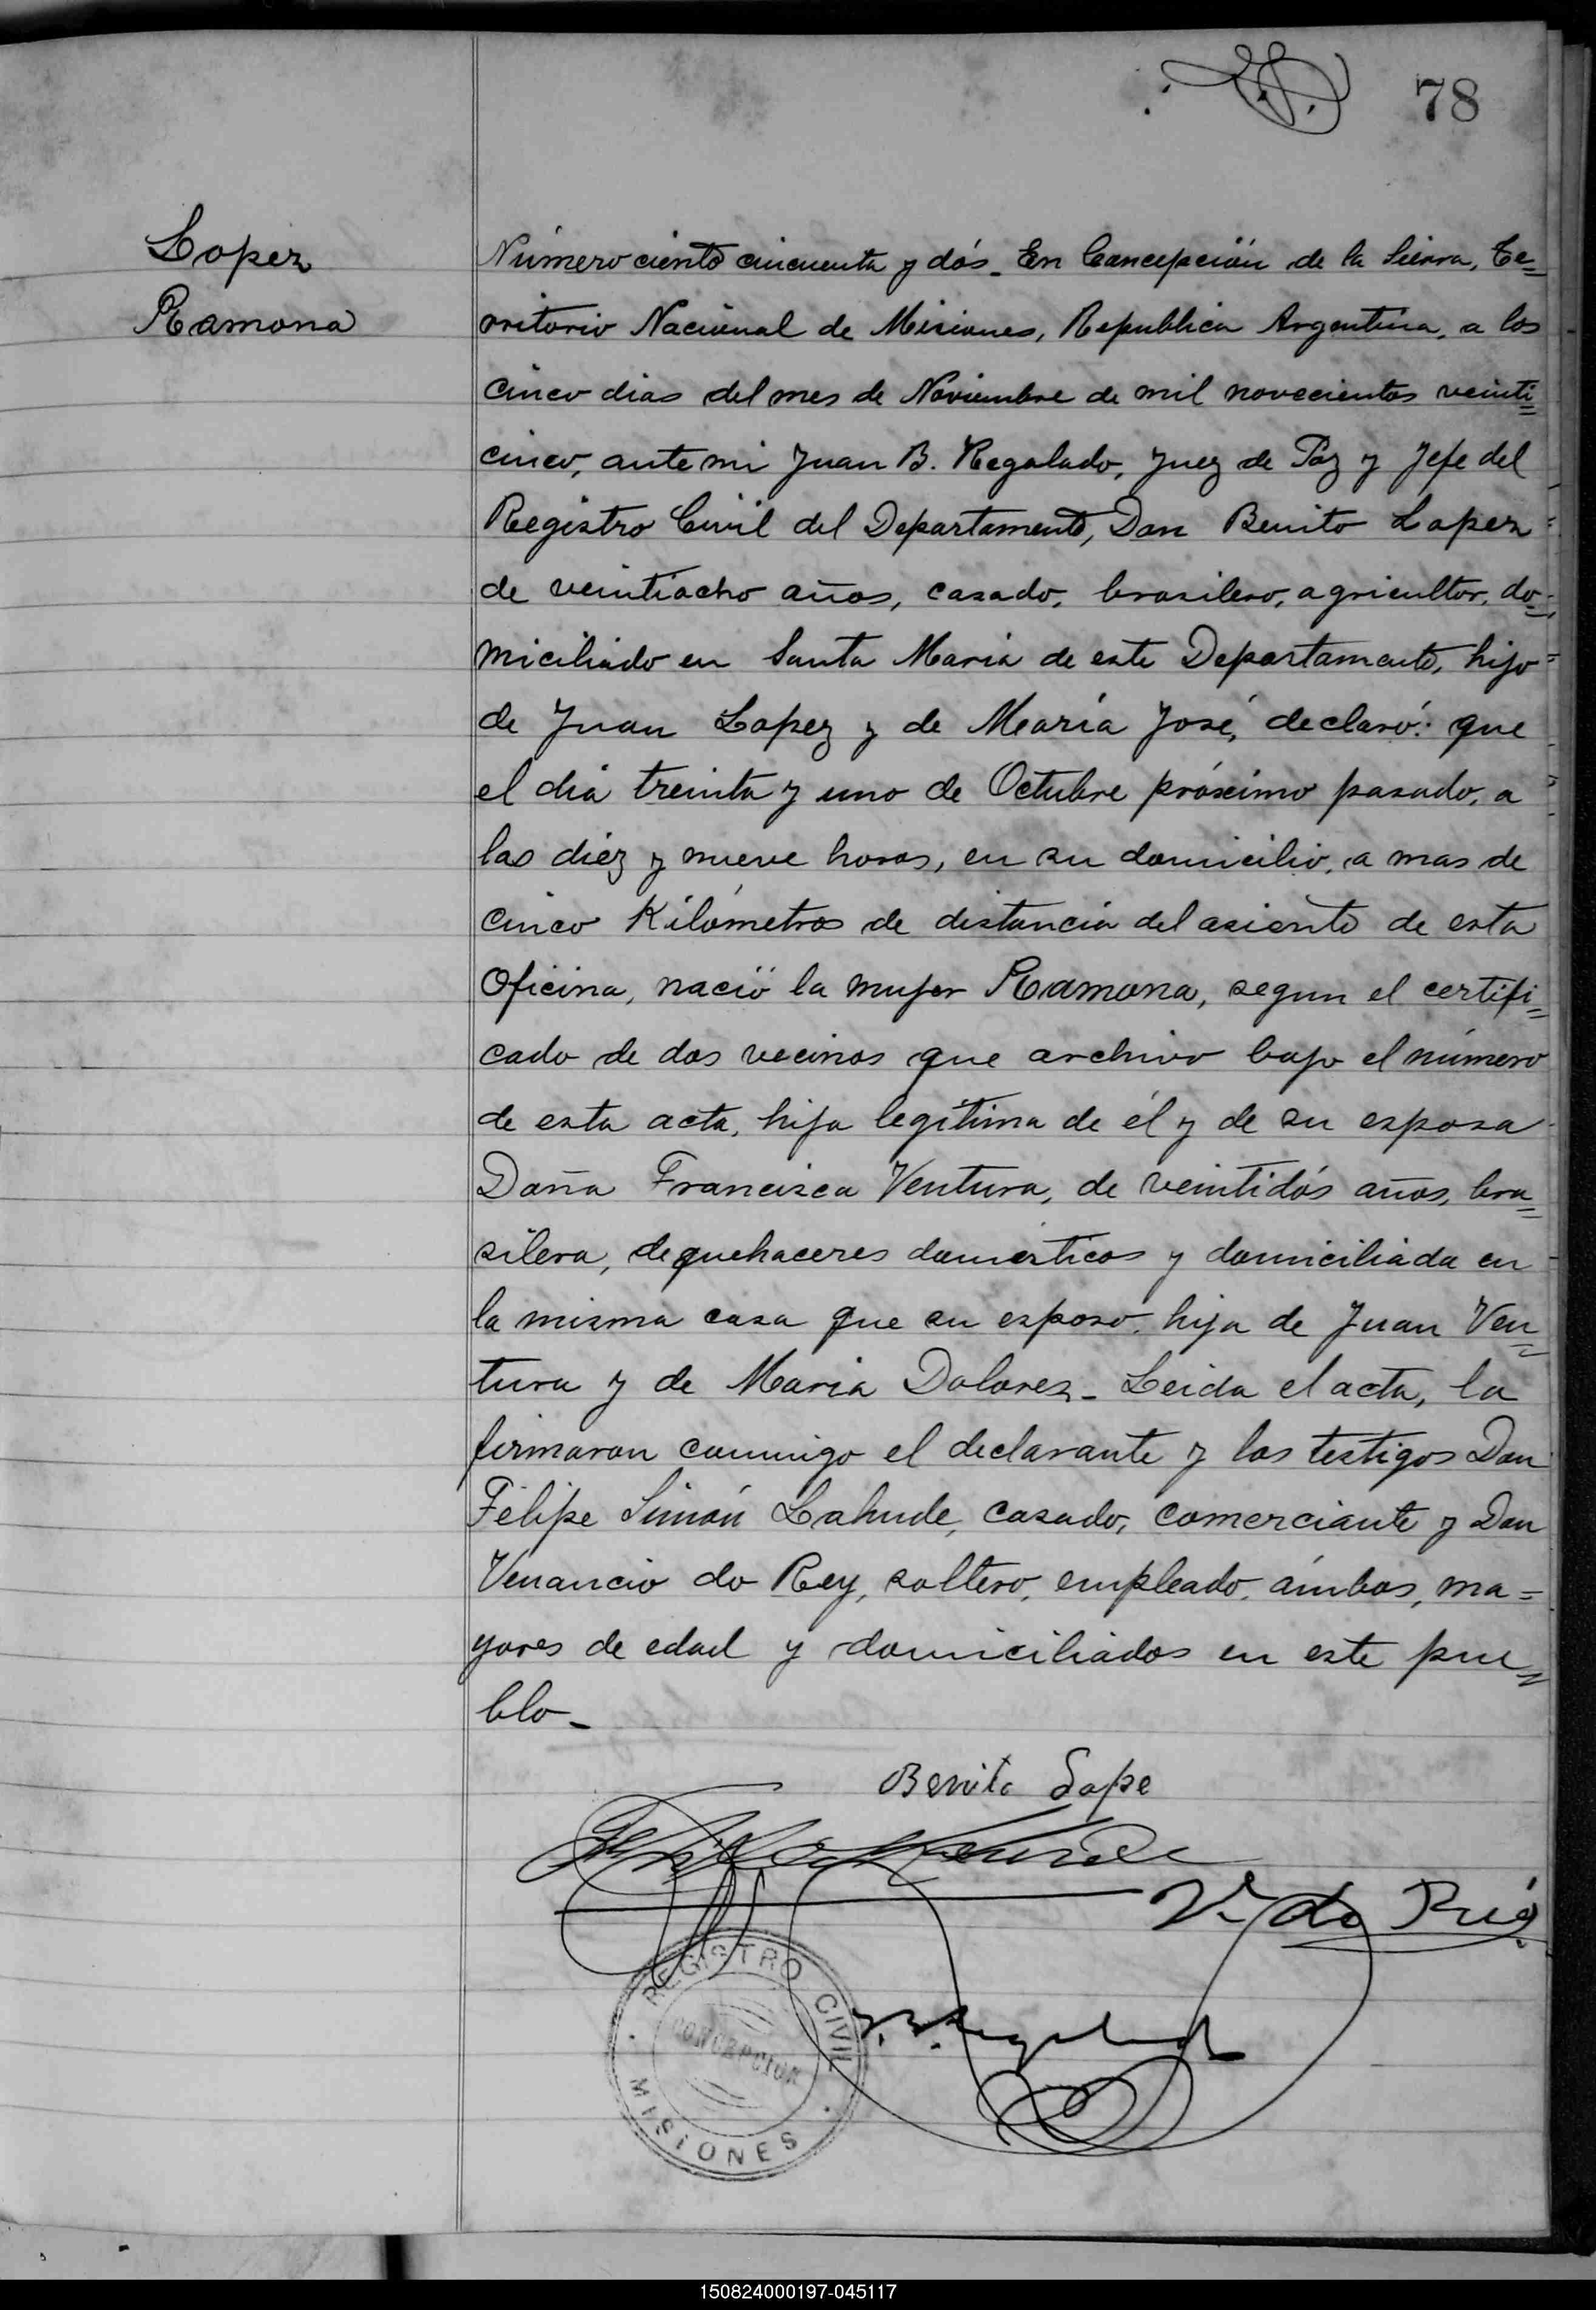 78
Lopez
Ramona
Número ciento cincuenta y dós_ En Concepción de la Sierra, Te=
rritorio Nacional de Misiones, Republica Argentina, a los
cinco dias del mes de Noviembre de mil novecientos veinti=
cinco, ante mi Juan B. Regalado, Juez de Paz y Jefe del
Registro Civil del Departamento, Don Benito Lopez
de veintiocho años, casado, brasilero, agricultor, do=
miciliado en Santa Maria de este Departamento, hijo
de Juan Lopez y de María José, declaró: que
el dia treinta y uno de Octubre próximo pasado, a
las diéz y nueve horas, en su domicilio, a mas de
cinco Kilómetros de distancia del asiento de esta
Oficina, nació la mujer Ramona, segun el certifi=
cado de dos vecinos que archivo bajo el número
de esta acta, hija legítima de él y de su esposa
Doña Francisca Ventura, de veintidós años, bra=
silera, de quehaceres domésticos y domiciliada en
la misma casa que su esposo, hija de Juan Ven=
tura y de Maria Dolores_ Leida el acta, la
firmaron conmigo el declarante y los testigos Don
Felipe Simón Lahude, casado, comerciante y Don
Venancio do Rey, soltero, empleado, ámbos, ma=
yores de edad y domiciliados en este pue=
blo_
Benito Lope
V. do Rey
J. B. Regalado
REGISTRO CIVIL
CONCEPCION
MISIONES
150824000197-045117